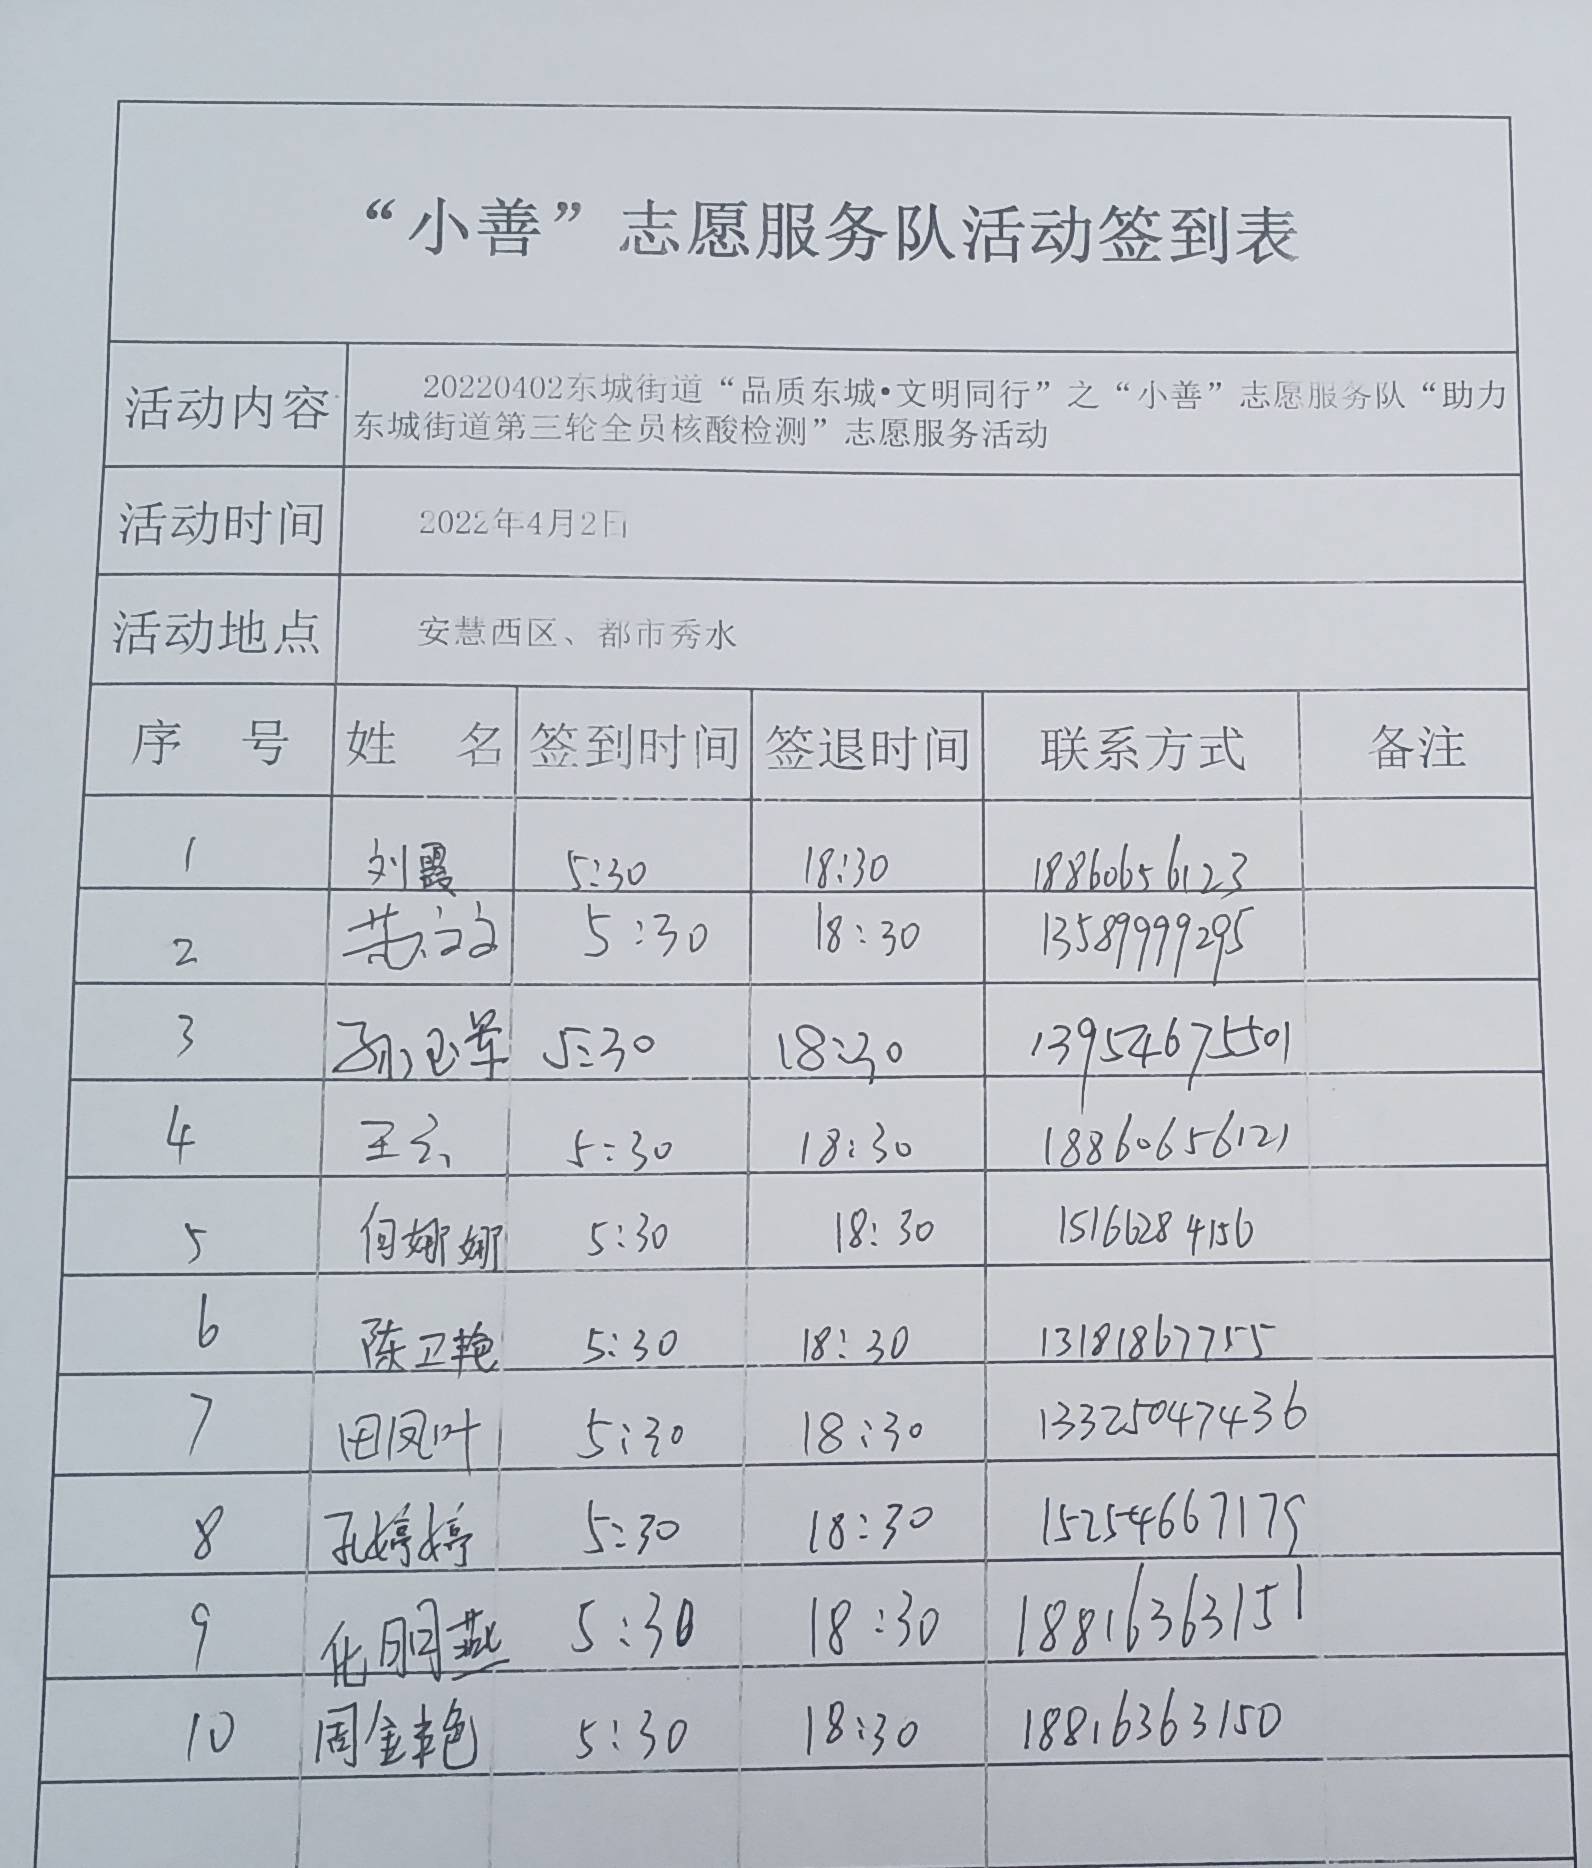 “小善”志愿服务队活动签到表
活动内容 20220402东城街道“品质东城•文明同行”之“小善”志愿服务队“助力
东城街道第三轮全员核酸检测”志愿服务活动
活动时间 2022年4月2日
活动地点 安慧西区、都市秀水
序 号 姓 名 签到时间 签退时间 联系方式 备注
1 刘霞 5:30 18:30 18860656123
2 5:30 18:30 13589999295
3 孙卫军 5:30 18:30 13954675501
4 王云 5:30 18:30 18860656121
5 何娜娜 5:30 18:30 15166284156
6 陈卫艳 5:30 18:30 13181867755
7 田凤叶 5:30 18:30 13325047436
8 孔婷婷 5:30 18:30 15254667175
9 化明燕 5:30 18:30 18816363151
10 周金艳 5:30 18:30 18816363150